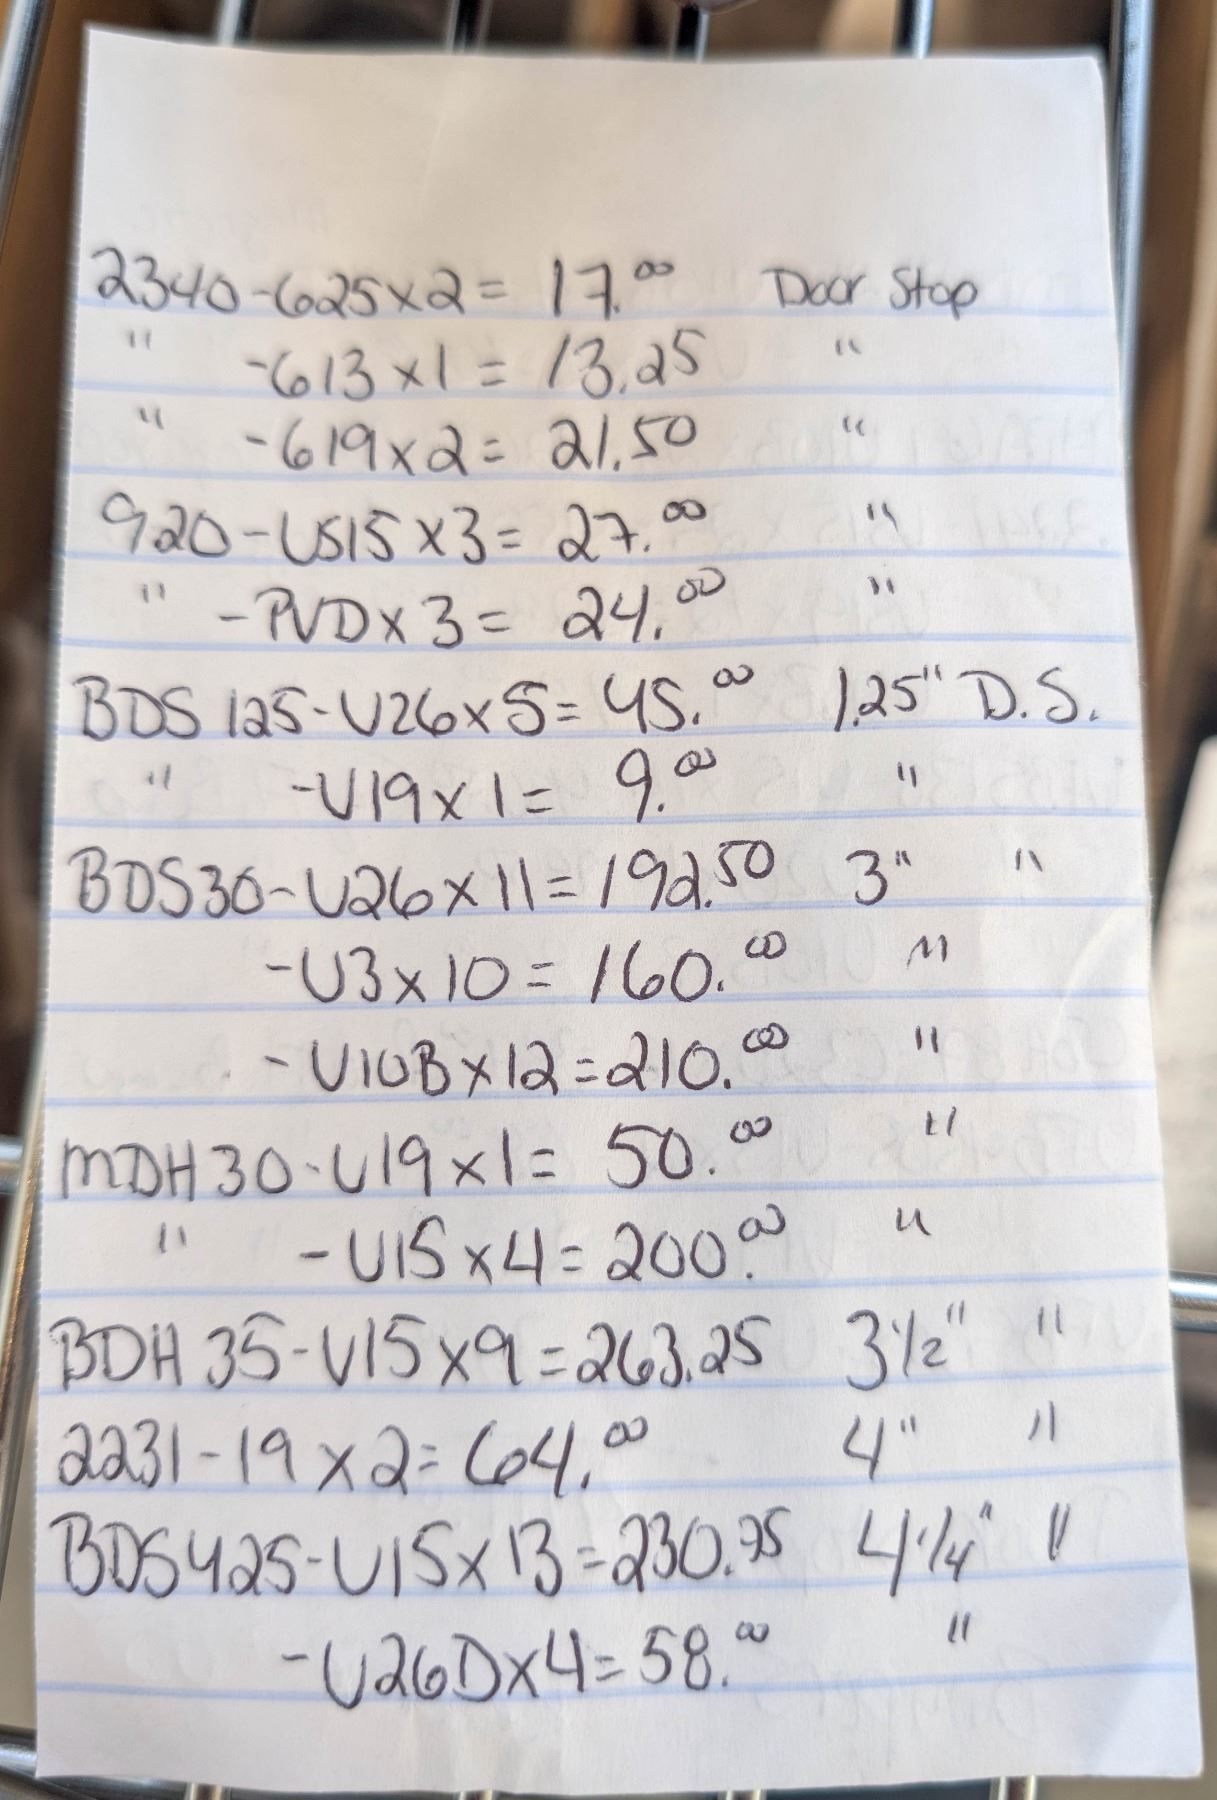 2340-625x2= 17.00 Door Stop
" -613x1= 13.25 "
" -619x2= 21.50 "
920-US15x3= 27.00 "
" -PVDx3= 24.00 "
BDS125-U26x5= 45.00 1.25" D.S.
" -U19x1= 9.00 "
BDS30-U26x11=192.50 3" "
-U3x10=160.00 "
-U10Bx12=210.00 "
MDH30-U19x1= 50.00 "
" -U15x4=200.00 "
BDH35-U15x9=263.25 3 1/2" "
2231-19x2=64.00 4" "
BDS425-U15x13=230.75 4 1/4" "
-U26Dx4=58.00 "